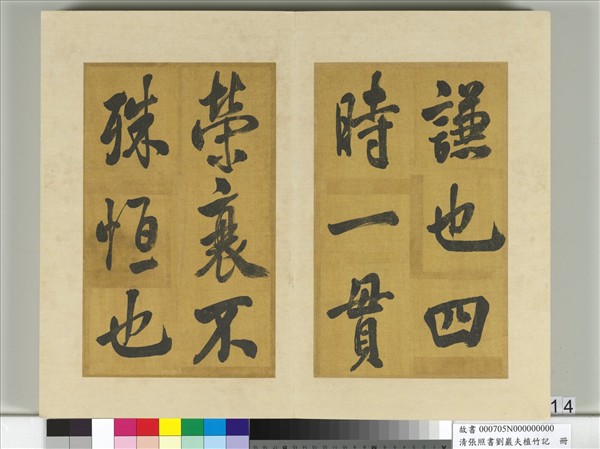 謙也四
時一貫
榮衰不
殊恒也
14
故書 000705N000000000
清張照書劉巖夫植竹記 冊